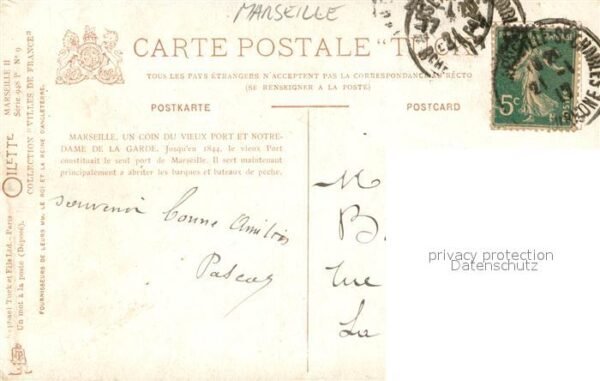 MARSEILLE
CARTE POSTALE "T
TOUS LES PAYS ÉTRANGERS N'ACCEPTENT PAS LA CORRESPONDANCE AU RECTO
(SE RENSEIGNER A LA POSTE)
POSTKARTE
POSTCARD
5c
MARSEILLE. UN COIN DU VIEUX PORT ET NOTRE-
DAME DE LA GARDE. Jusqu'en 1844, le vieux Port
constituait le seul port de Marseille. Il sert maintenant
principalement a abriter les barques et bateaux de pêche.
souvenir bonne
Pascal
M
B
rue
La
privacy protection
Datenschutz
Raphael Tuck et Fils Ltd.-Paris
Un mot à la poste (Déposé).
OILETTE
MARSEILLE II
Série 948 P No 9
COLLECTION "VILLES DE FRANCE"
FOURNISSEURS DE LEURS MM. LE ROI ET LA REINE D'ANGLETERRE